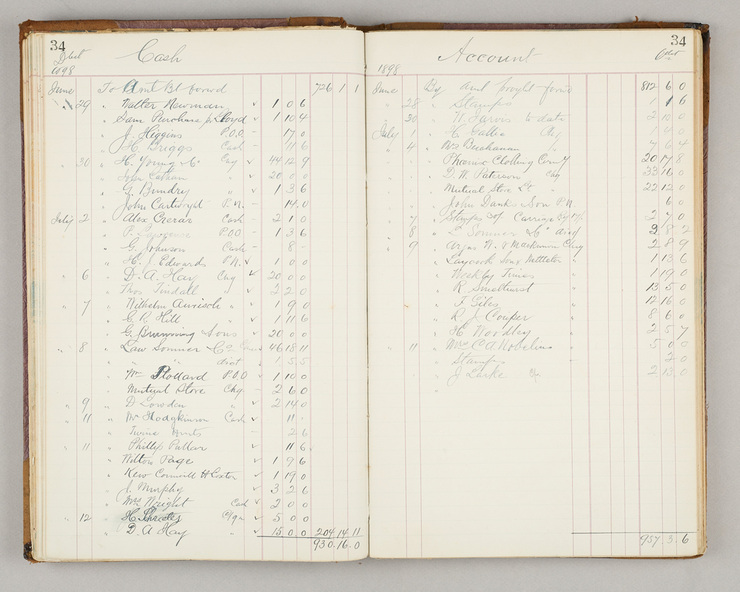 34
Cash
1898
June To Amt Bt forwd 726 1 1
29 " Walter Newman 1 0 6
" Sam Purchase 1 10 4
" J. Higgins P.O.O. 17 0
" H. Briggs Cash 11 6
30 " H. Young & Co Chq 44 12 9
" 20 0 0
" G. Bundry " 1 3 6
" John Cartwright P.N. 14 0
July 2 " Alex Crerar Cash 2 1 0
" P. P.O.O. 1 3 6
" G. Johnson Cash 8 -
" H. J. Edwards P.N. 1 0 0
6 " D. A. Hay Chq 20 0 0
" Thos Tindall " 2 2 0
7 " Wilhelm " 1 9 0
" C. R. Hill " 1 11 6
" G. Brunning & Sons " 20 0 0
8 " Law Somner & Co 46 18 11
" " disct 5 5
" Wm Pollard P.O.O 1 10 0
" Mutual Store Chq 2 6 0
9 " D. Lowden " 2 14 0
11 " Mr Hodgkinson Cash 11 -
" Twine 2 6
11 " Phillip 11 6
" Wilton Page 1 9 6
" Kew 1 19 0
" J. Murphy 3 2 6
" Mrs Wright Cash 2 0 0
12 " H. Chqe 5 0 0
" D. A. Hay " 15 0 0 204.14.11
930.16.0
34
Account
1898
June By amt brought forwd 812 6 0
28 " Stamps 1 1 6
30 " W. Jarvis to date 2 10 0
July 1 " H. Chq 1 4 0
4 " Ms Buchanan " 7 6 4
" Phoenix Clothing Coy 20 17 8
" D. W. Paterson Chq 33 16 0
" Mutual Store Ld " 22 12 0
" John Danks & Son P.N. 6 0
7 " Stamps 2 7 0
8 " " Somner & Co disct 2 8 2
9 " Argus W. & Mackinnon Chq 2 8 9
" Laycock Son & Nettleton " 1 13 6
" Weekly Times " 1 19 0
" R Smethurst " 13 5 0
" F. Giles " 12 16 0
" R. J. Couper " 8 6 0
" H. Woodley " 2 5 7
11 " Mrs C. A. " 5 0 0
" Stamps - 2 0
" J. Clarke Chq 2 13 0
957.3.6